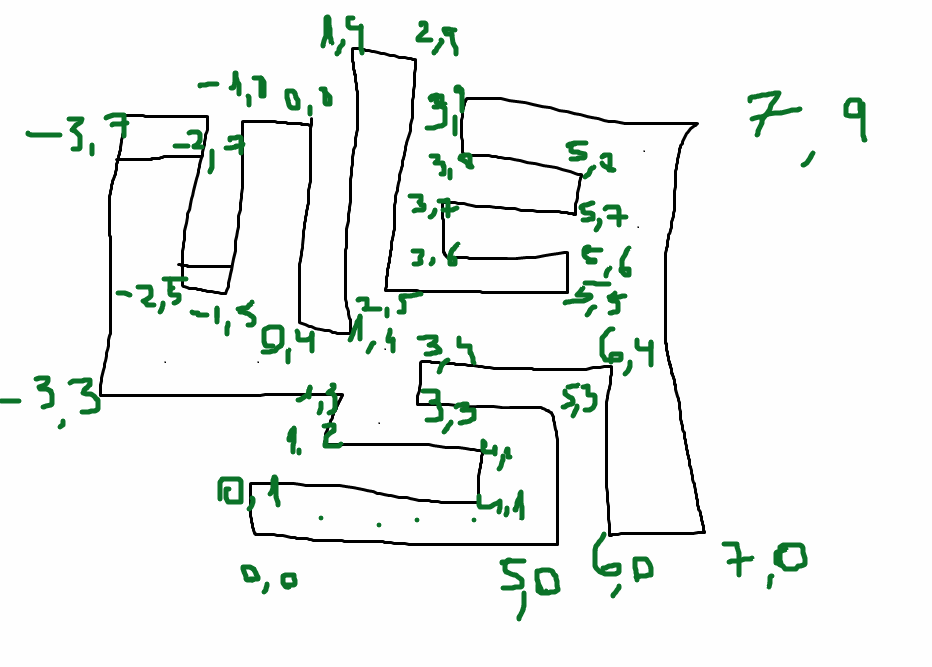 1,9
2,9
-1,8
0,8
3,9
7,9
-3,7
-2,7
3,8
5,8
3,7
5,7
3,6
5,6
-2,5
-1,5
2,5
5,5
0,4
1,4
3,4
6,4
-3,3
1,3
3,3
5,3
1,2
4,2
0,1
4,1
0,0
5,0
6,0
7,0